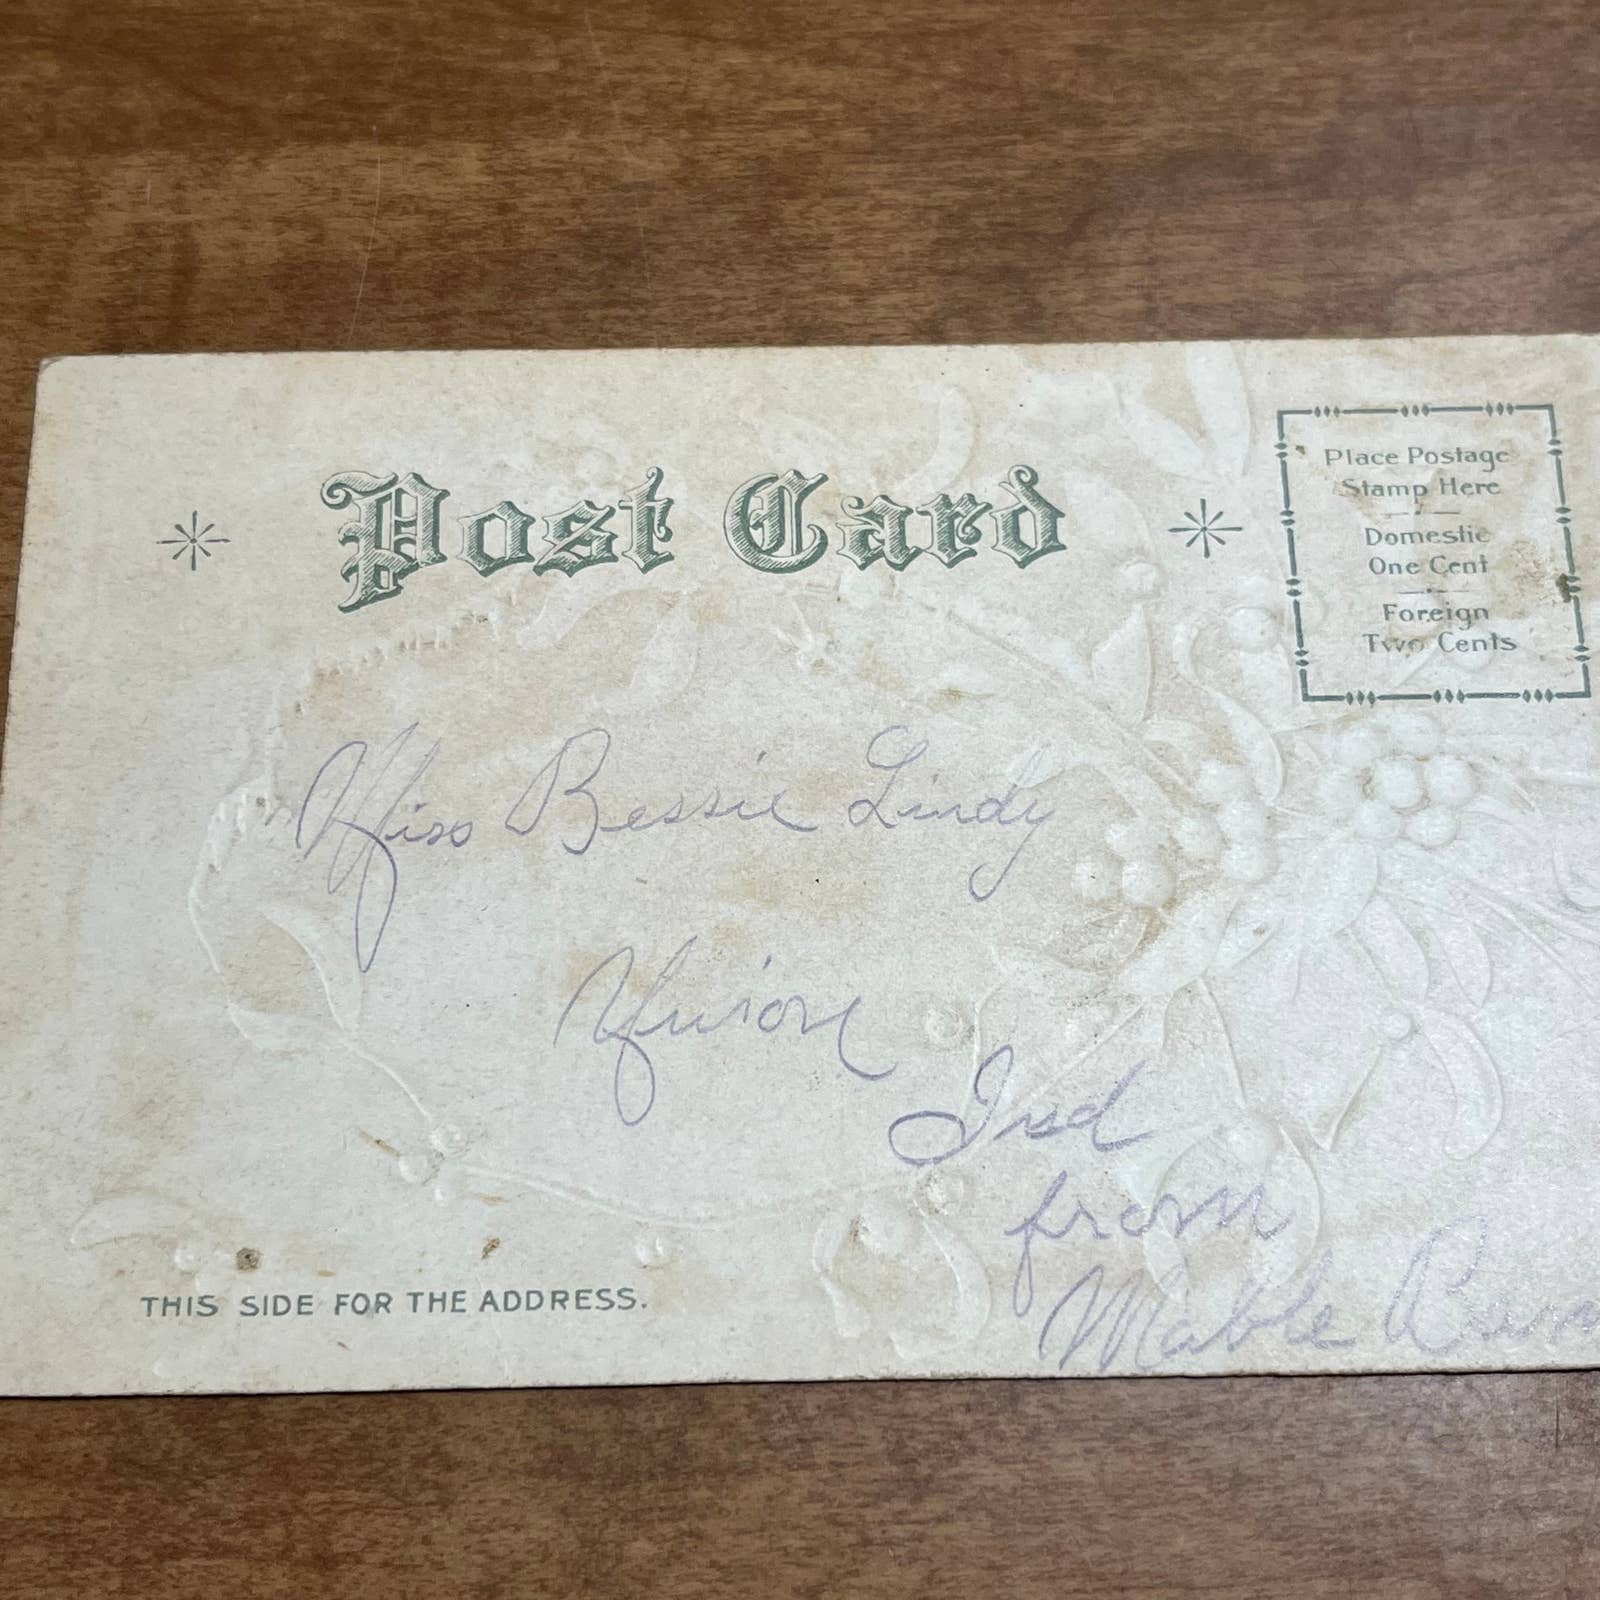 Post Card
Place Postage
Stamp Here
Domestic
One Cent
Foreign
Two Cents
Miss Bessie Lindy
Union
Ind
from
Mable
THIS SIDE FOR THE ADDRESS.